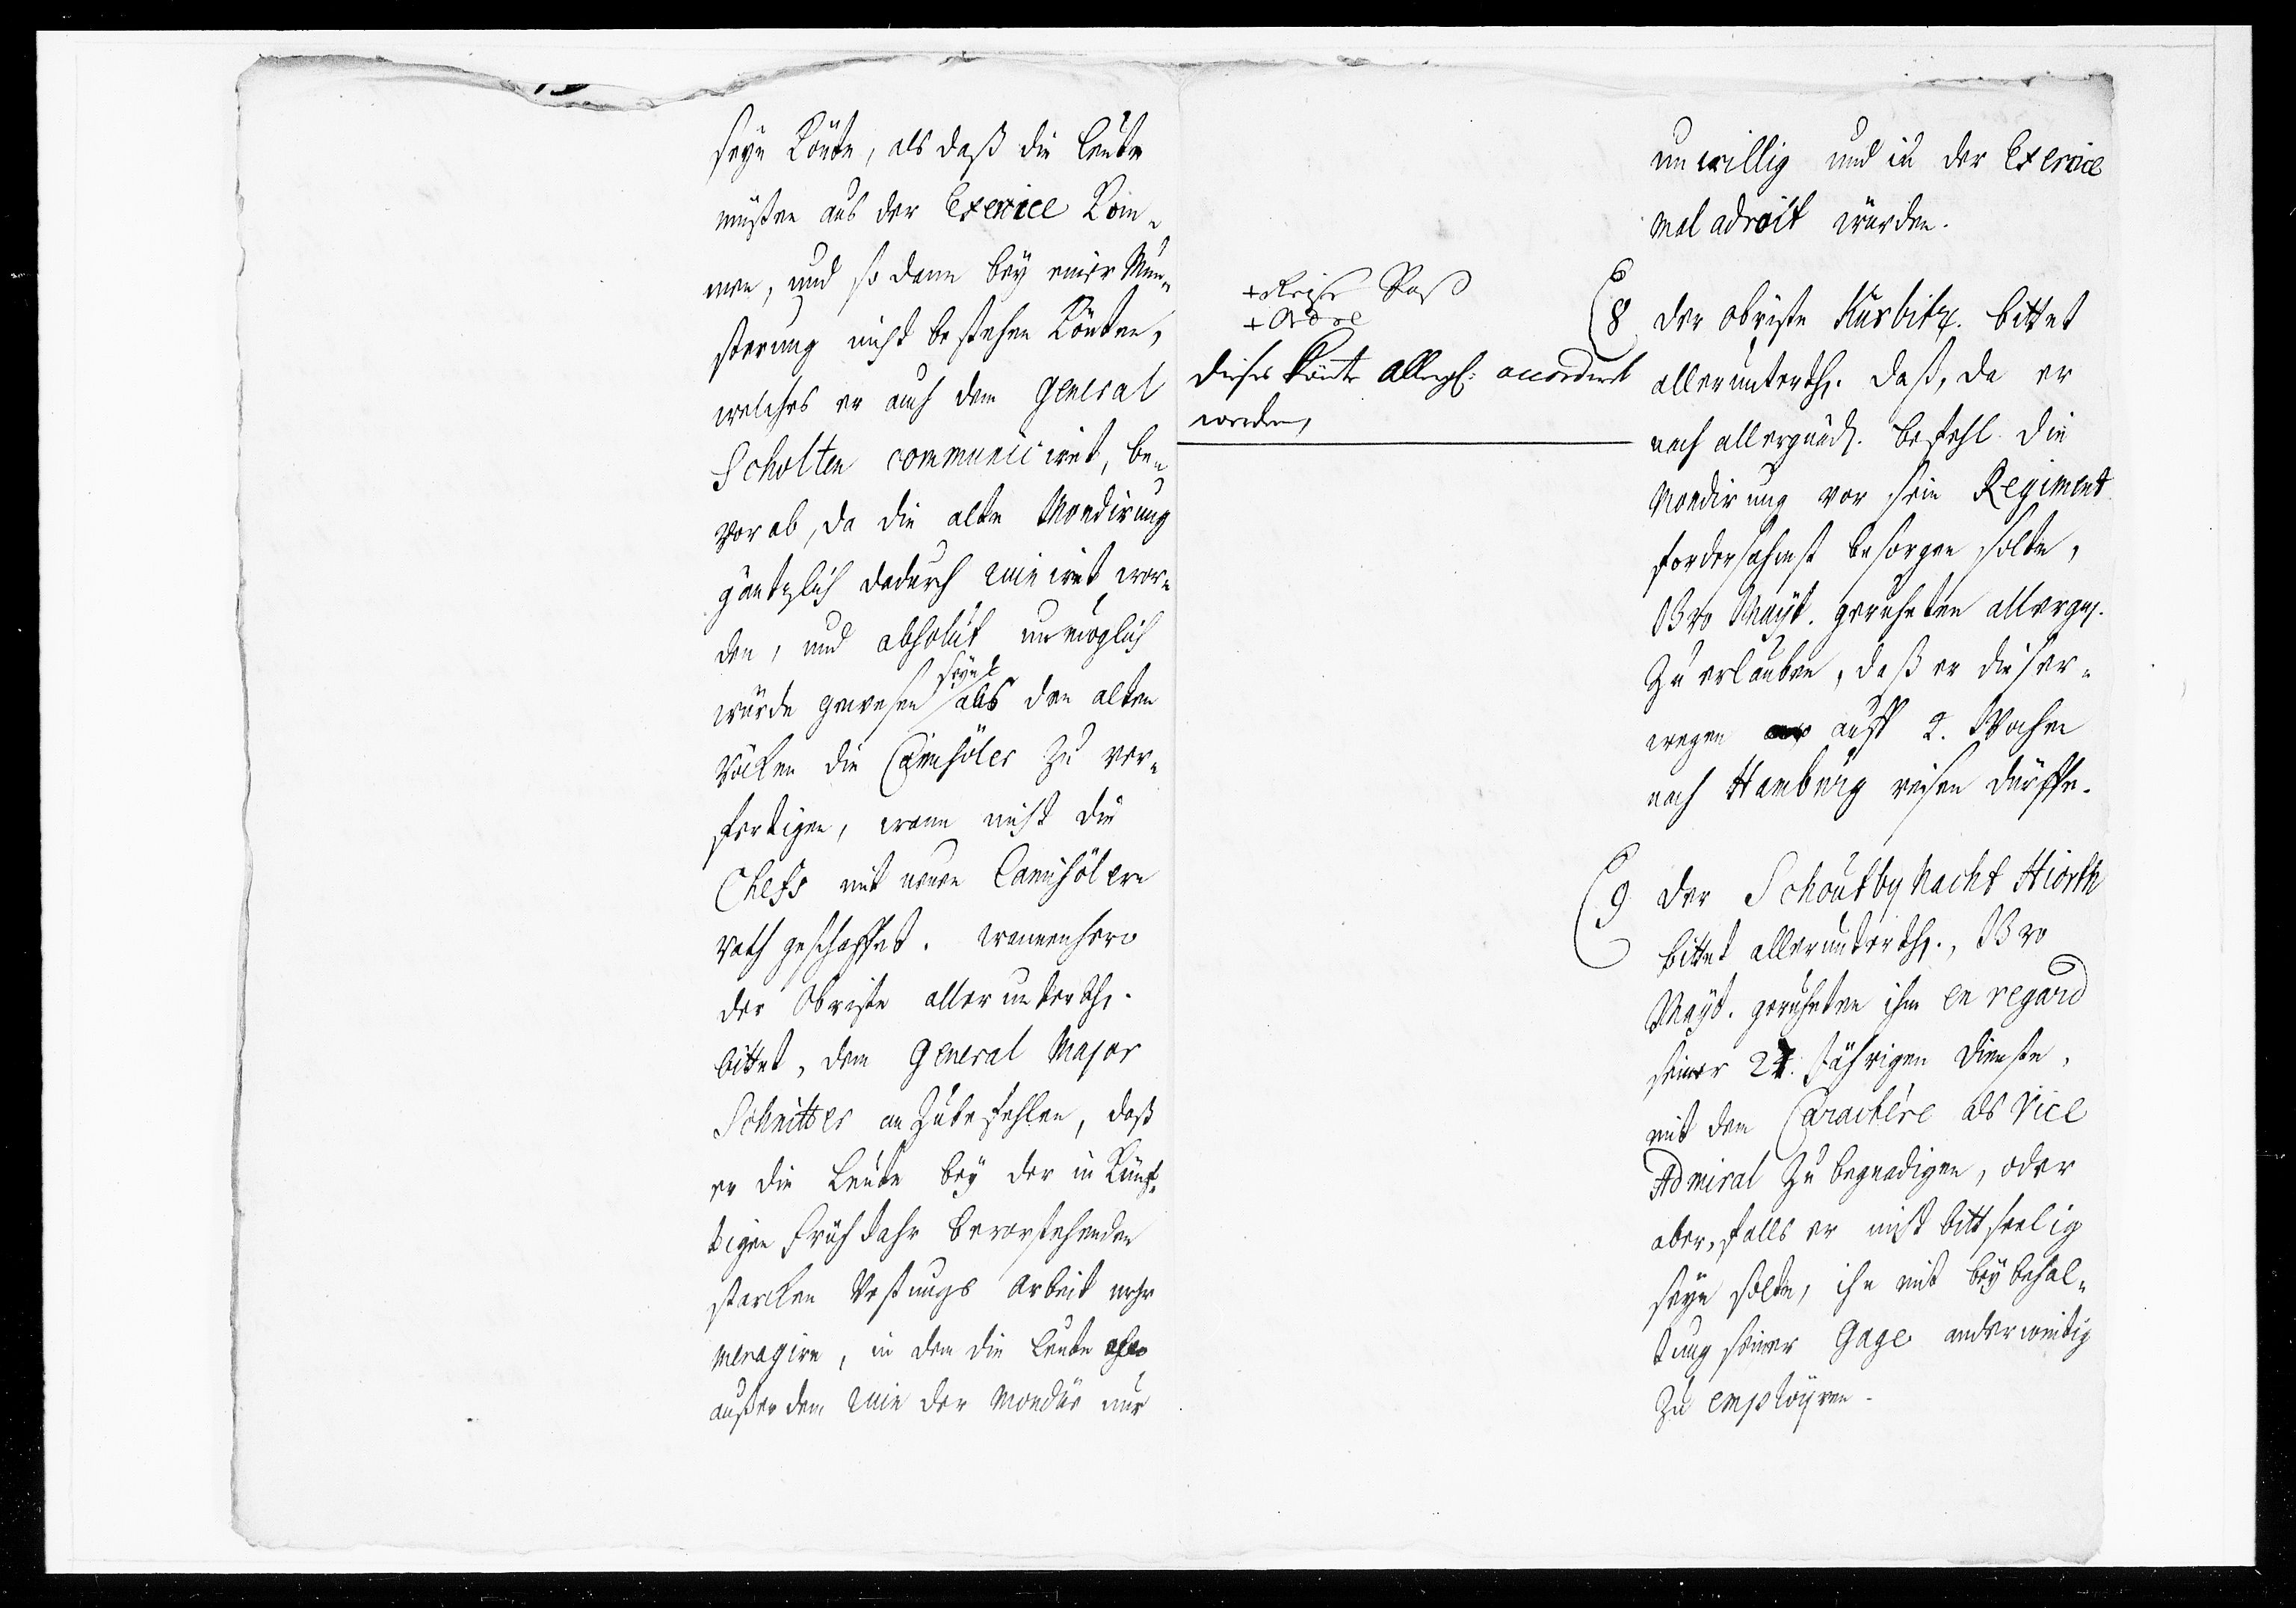 seyn könte, als daß die Leute
müßen aus der Exercice kom-
men, und so dann bey einer Mun-
sterung nicht bestehen könten,
welches er auch dem General
Scholten communiciret, be-
vorab, da die alte Mondirung
gäntzlich dadurch ruiniret wor-
den, und absolut unmöglich
würde gewesen seyn aus den alten
Röcken die Camisöler zu ver-
fertigen, wann nicht die
Chefs mit neuen Camisölern
rath geschaffet. wannenhero
der Obriste allerunterth.
bittet, dem General Major
Schnitter anzubefehlen, daß
er die Leute bey der in künf-
tigen Früh Jahr bevorstehenden
starcken Vestungs Arbeit mehr
menagire, in dem die Leute
außer dem ruin der Mondur nur
+ Reise Paß
+ Ordre
dieses könte allergn: accordirt
werden,
unwillig und in der Exercice
mal adroit würden.
8 Der Obriste Kürbitz. bittet
allerunterth. daß, da er
nach allergnäd. Befehl die
Mondirung vor sein Regiment
fordersahmst besorgen solte,
Ewr Mayt. geruheten allergn.
zu erlauben, daß er dieser-
wegen auff 2. Wochen
nach Hamburg reisen dürffe.
9 Der Schoutbynacht Hiorth
bittet allerunterth., Ewr
Mayt. geruheten ihm en regard
seiner 24. Jährigen Dienste,
mit dem Caractère als Vice
Admiral zu begnadigen, oder
aber, falls er nicht bittseelig
seyn solte, ihn mit beybehal-
tung seiner Gage anderweitig
zu employren.